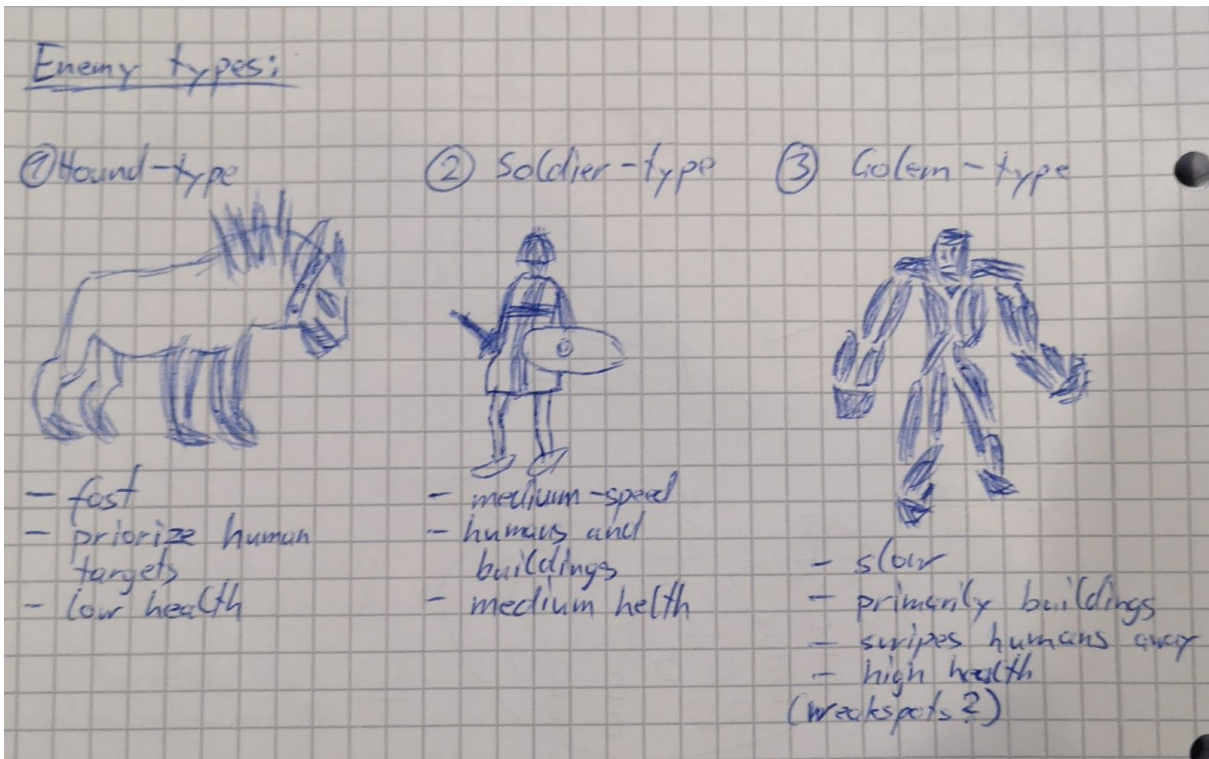 Enemy types:
① Hound-type
- fast
- priorize human
targets
- low health
② Soldier-type
- medium-speed
- humans and
buildings
- medium helth
③ Golem-type
- slow
- primarily buildings
- swipes humans away
- high health
(weakspots?)